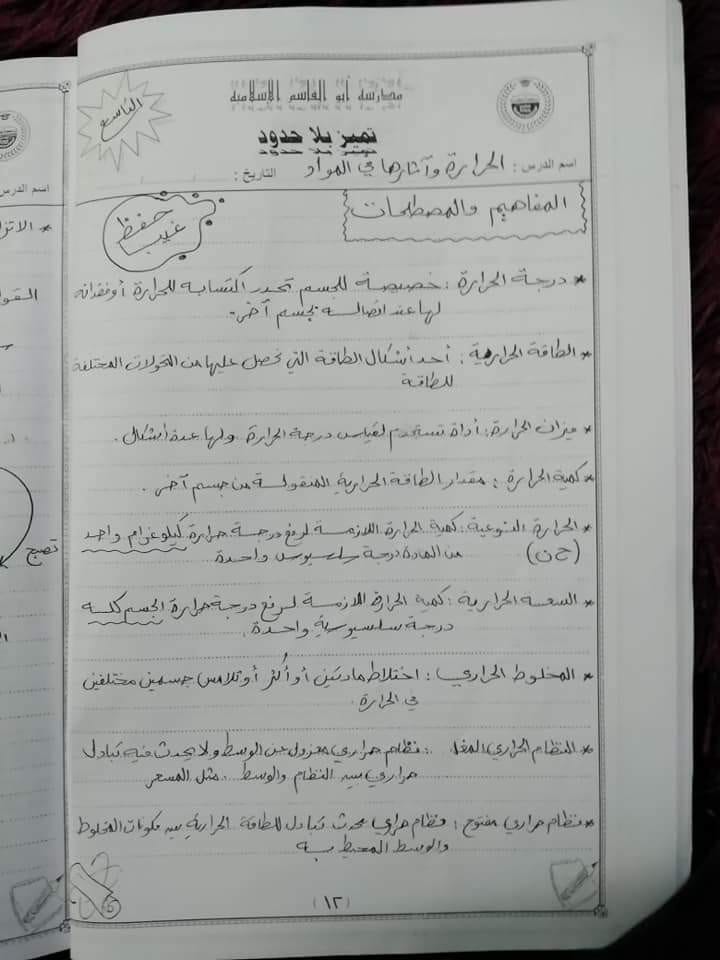 مدرسة أبو القاسم الإسلامية
التاسع
تميز بلا حدود
اسم الدرس : الحرارة وآثارها في المواد التاريخ :
المفاهيم والمصطلحات
حفظ
غيب
* درجة الحرارة : خصيصة للجسم تحدد اكتسابه للحرارة أو فقدانه
لها عند اتصاله بجسم آخر.
* الطاقة الحرارية : أحد أشكال الطاقة التي نحصل عليها من التحولات المختلفة
للطاقة
* ميزان الحرارة : أداة تستخدم لقياس درجة الحرارة ولها عدة أشكال .
* كمية الحرارة : مقدار الطاقة الحرارية المنقولة من جسم آخر .
* الحرارة النوعية : كمية الحرارة اللازمة لرفع درجة حرارة كيلوغرام واحد
(ح ن) من المادة درجة سلسيوس واحدة
* السعة الحرارية : كمية الحرارة اللازمة لرفع درجة حرارة الجسم كله
درجة سلسيوسية واحدة .
* المخلوط الحراري : اختلاط مادتين أو أكثر أو تلامس جسمين مختلفين
في الحرارة
* النظام الحراري المغلق : نظام حراري معزول عن الوسط ولا يحدث فيه تبادل
حراري بين النظام والوسط .. مثل المسعر
* نظام حراري مفتوح : نظام حراري يحدث تبادل للطاقة الحرارية بين مكونات المخلوط
والوسط المحيط به
(١٢)
اسم الدرس
تصبح